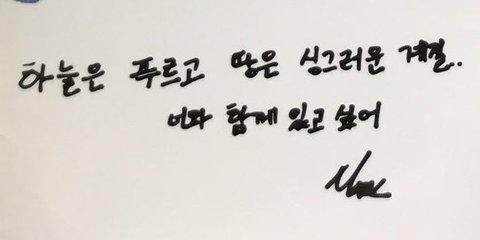 하늘은 푸르고 땅은 싱그러운 계절..
너와 함께 있고 싶어